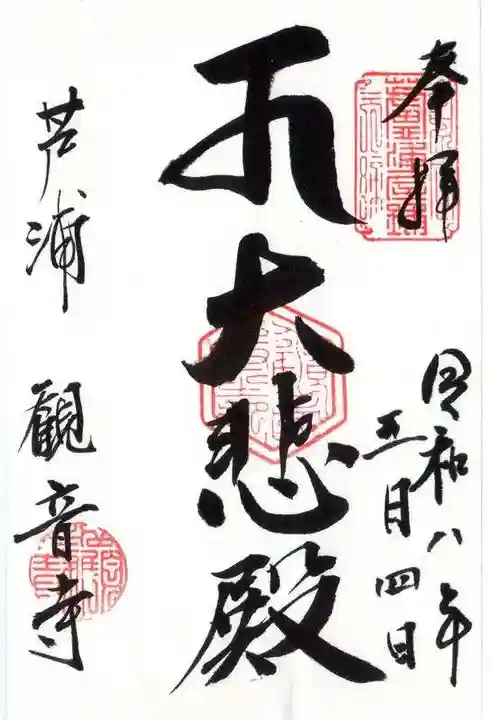 奉拝
令和八年
五月四日
大悲殿
芦浦 観音寺